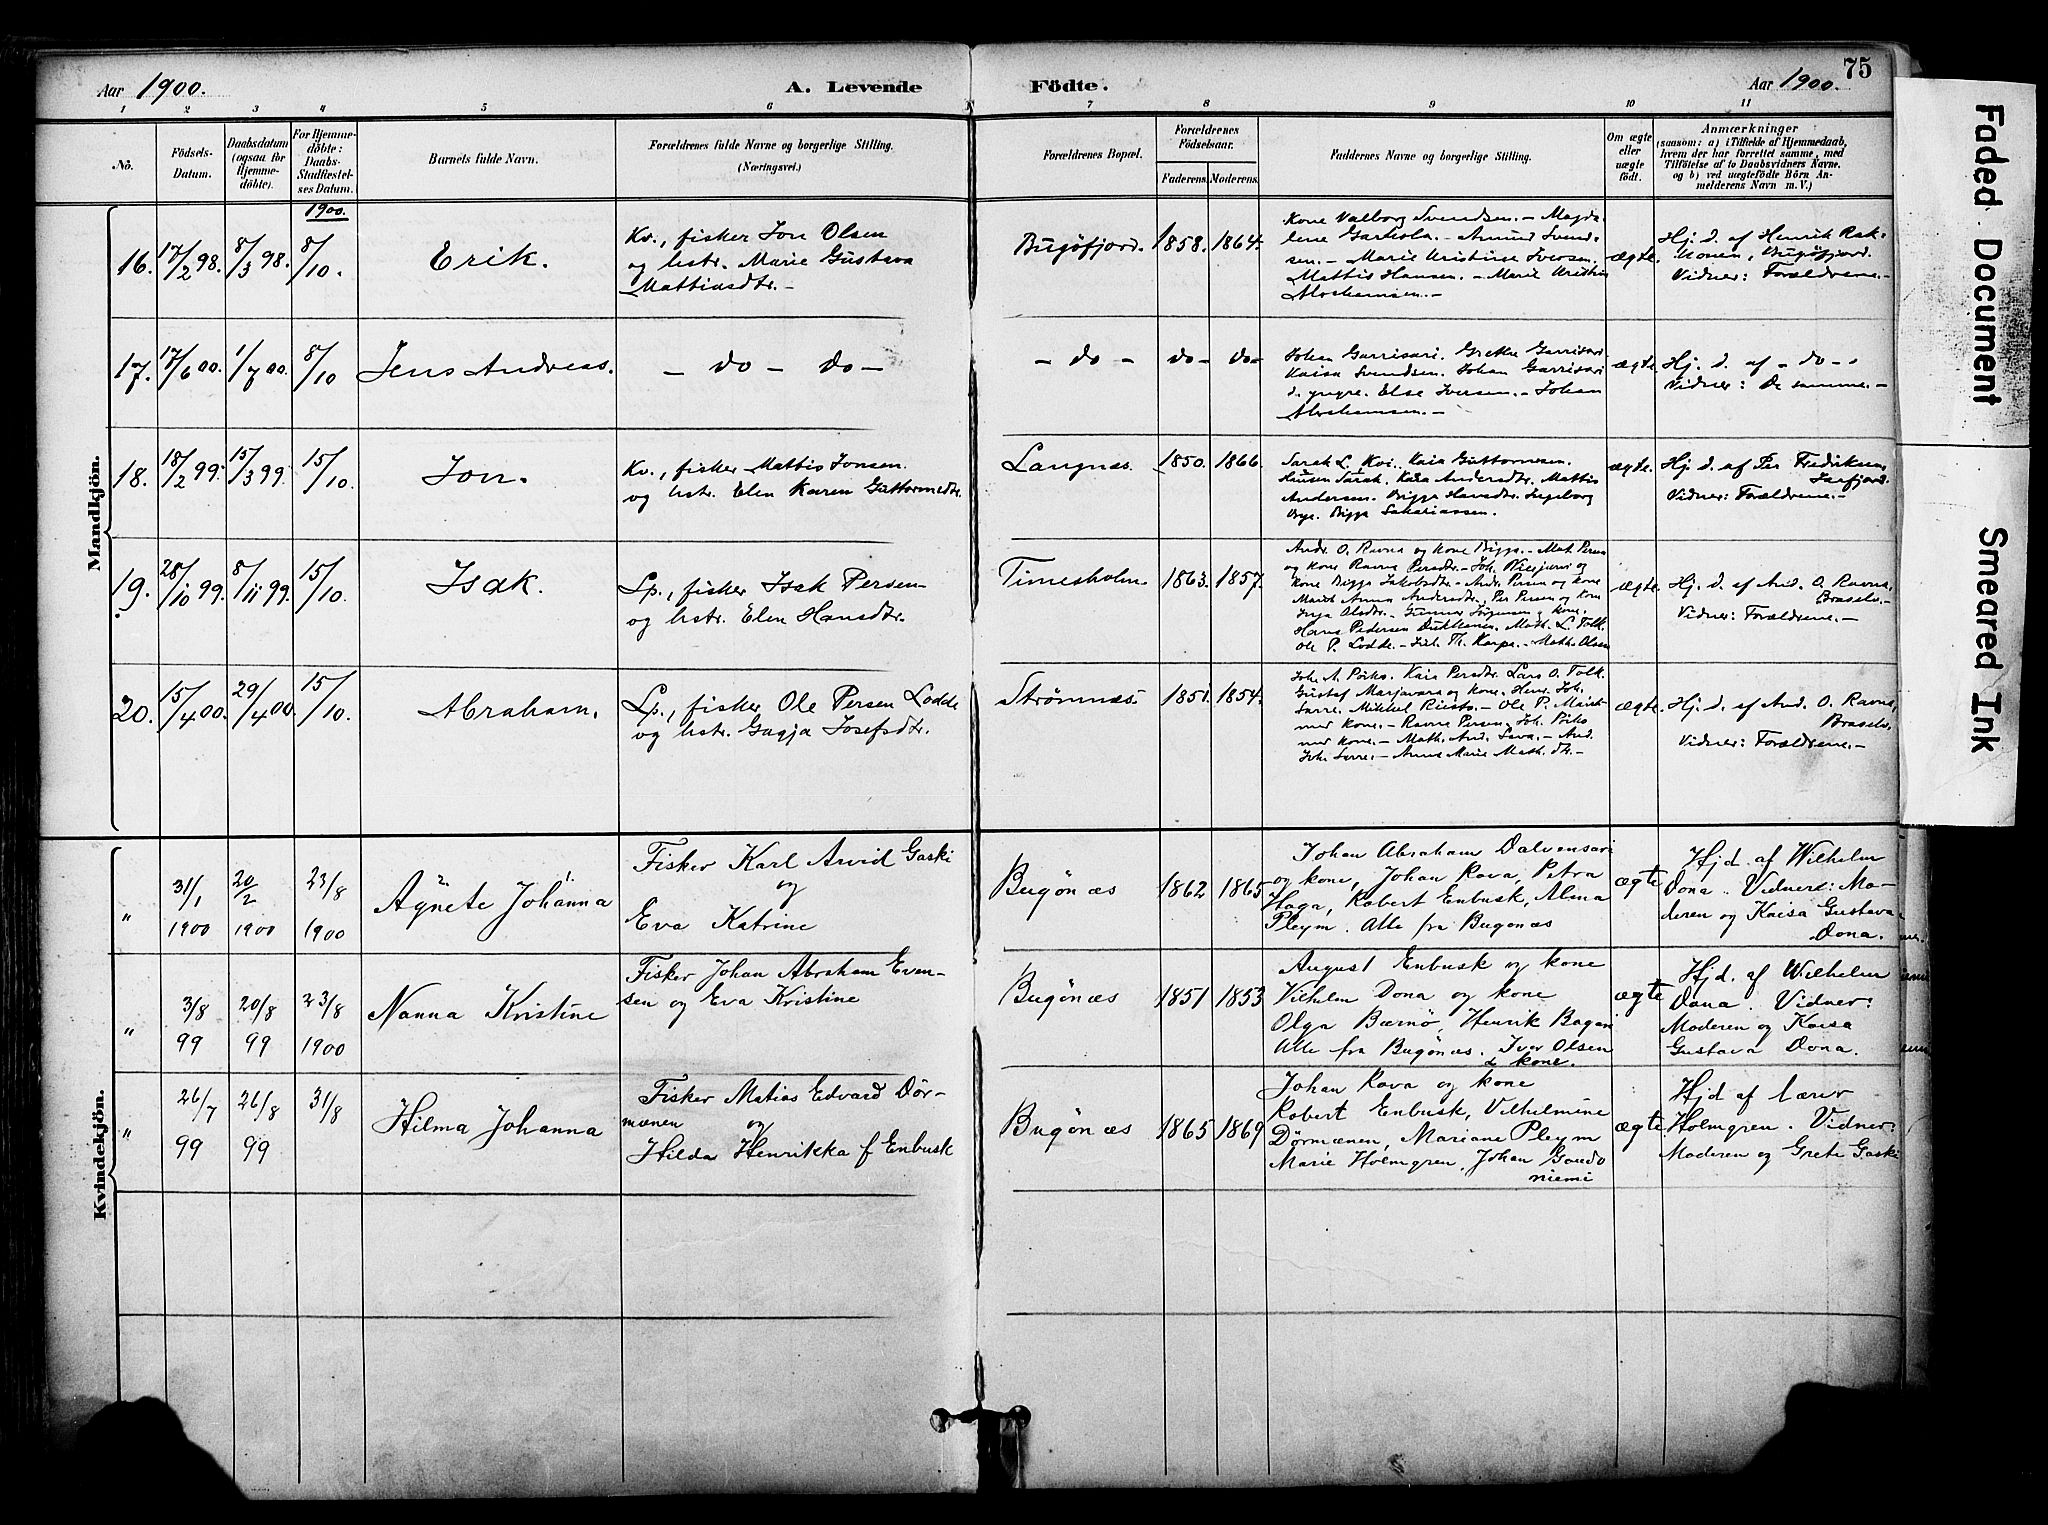 75
Aar 1900. A. Levende Födte. Aar 1900.
1 2 3 4 5 6 7 8 9 10 11
No.
Födsels-
Datum.
Daabsdatum
(ogsaa for
Hjemme-
döbte).
For Hjemme-
döbte:
Daabs-
Stadfæstel-
ses Datum.
Barnets fulde Navn.
Forældrenes fulde Navne og borgerlige Stilling.
(Næringsvei.)
Forældrenes Bopæl.
Forældrenes
Födselsaar.
Faderens. Moderens.
Faddernes Navne og borgerlige Stilling.
Om ægte
eller
uægte
födt.
Anmærkninger
(saasom: a) i Tilfælde af Hjemmedaab,
hvem der har forrettet samme, med
Tilföielse af to Daabsvidners Navne,
og b) ved uægtefödte Börn An-
melderens Navn m. V.)
Mandkjön.
1900.
16. 17/2 98. 8/3 98. 8/10. Erik.
Kv., fisker Jon Olsen
og hstr. Marie Gustava
Mattiasdtr. -
Bugöfjord. 1858. 1864.
Kone Valborg Svendsen. - Magda-
lene - Amund Svend-
sen. - Marie Kristine Iversen.
Mattis Hansen. - Marie Kristine
Abrahamsen. -
ægte.
Hj. d. af Henrik Rak-
konen, Bugöfjord.
Vidner: Forældrene. -
17. 17/6 00. 1/7 00. 8/10 Jens Andreas.
- do - do -
- do - do - do -
Johan Garrisari. Grethe Garrisari
Kaisa Svendsen. Johan Garrisari
d. yngre. Else Iversen. - Johan
Abrahamsen. -
ægte.
Hj. d. af - do - .
Vidner: De samme. -
18. 18/2 99. 15/3 99. 15/10. Jon.
Kv., fisker Mattis Jonsen.
og hstr. Elen Karen Guttormsdtr.
Langnæs. 1850. 1866.
Sarak L. Kaia Guttormsen.
Sarak. Kaia Andersdtr. Mattis
Andersen. Bigga Hansdtr. Ingeborg
Bigga Sakariassen.
ægte.
Hj. d. af Per Fredriksen,
Jarfjord.
Vidner: Forældrene. -
19. 28/10 99. 8/11 99. 15/10. Isak.
Lp., fisker Isak Persen
og hstr. Elen Hansdtr.
Timesholm. 1863. 1857.
Andr. O. Ravna og kone Bigga. - Mat. Persen
og kone Ravna Persdtr. - Joh. og
kone Bigga Jakobsdtr. - Andr. Persen og kone
Marit Anna Andersdtr., Per Persen og kone
Inga Olsdtr. - Gunnar Jörgensen og kone.
Hans Pedersen Math. L. Tolk.
Ole P. Lodde. - Th. Karpe. - Math. Olsen
ægte.
Hj. d. af And. O. Ravna,
Brasselv. -
Vidner: Forældrene. -
20. 15/4 00. 29/4 00. 15/10. Abraham.
Lp., fisker Ole Persen Lodde
og hstr. Gagja Josefsdtr.
Strömnæs. 1851. 1854.
Joh. A. Kaia Persdtr. Lars O. Tolk.
Gustaf Marjavara og kone. Henr. Joh.
Sarre. Mikkel Riesto. - Ole P.
med kone. - Ravna Persen. Joh.
med kone. - Math. And. Sava. - And.
Joh. Sarre. - Anna Marie Math. dtr. -
ægte.
Hj. d. af And. O. Ravna,
Brasselv.
Vidner: Forældrene. -
Kvindekjön.
" 31/1 1900 20/2 1900 23/8 1900 Agnete Johanna
Fisker Karl Arvid Gaski
og
Eva Katrine
Bugönæs 1862 1865
Johan Abraham Dalvensari
og kone, Johan Rova, Petra
Haga, Robert Enbusk, Alma
Pleym. Alle fra Bugönæs
ægte
Hjd. af Wilhelm
Dona. Vidnere: Mo-
deren og Kaisa Gustava
Dona.
" 3/8 99 20/8 99 23/8 1900 Nanna Kristine
Fisker Johan Abraham Even-
sen og Eva Kristine
Bugönæs 1851 1853
August Enbusk og kone
Vilhelm Dona og kone
Olga Bærnö, Henrik Bagani
Alle fra Bugönæs. Iver Olsen
& kone.
ægte
Hjd. af Wilhelm
Dona. Vidner:
Moderen og Kaisa
Gustava Dona.
" 26/7 99 26/8 99 31/8 Hilma Johanna
Fisker Matias Edvard Dör-
mænen og
Hilda Henrikka f Enbusk
Bugönæs 1865 1869
Johan Rova og kone
Robert Enbusk, Vilhelmine
Dörmænen, Mariane Pleym
Marie Holmgren, Johan Gaudo
niemi
ægte
Hjd af lærer
Holmgren. Vidner:
Moderen og Grete Gaski
Faded Document
Smeared Ink